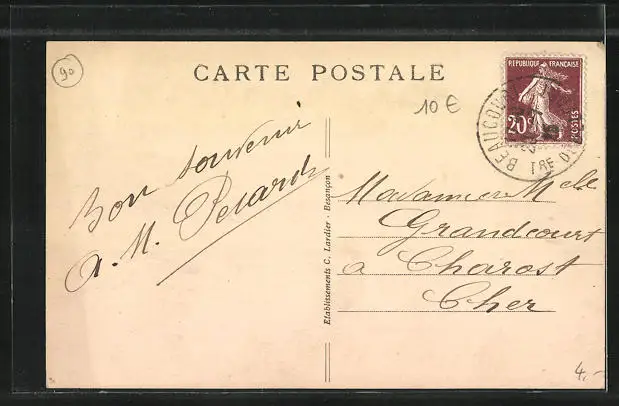 90
CARTE POSTALE
10 €
REPUBLIQUE FRANÇAISE
20c
POSTES
BEAUCOU
TRE DE
Bon souvenir
A. M. Pesard
Etablissements C. Lardier - Besançon
Madame et Melle
Grandcourt
a Charost
Cher
4,-